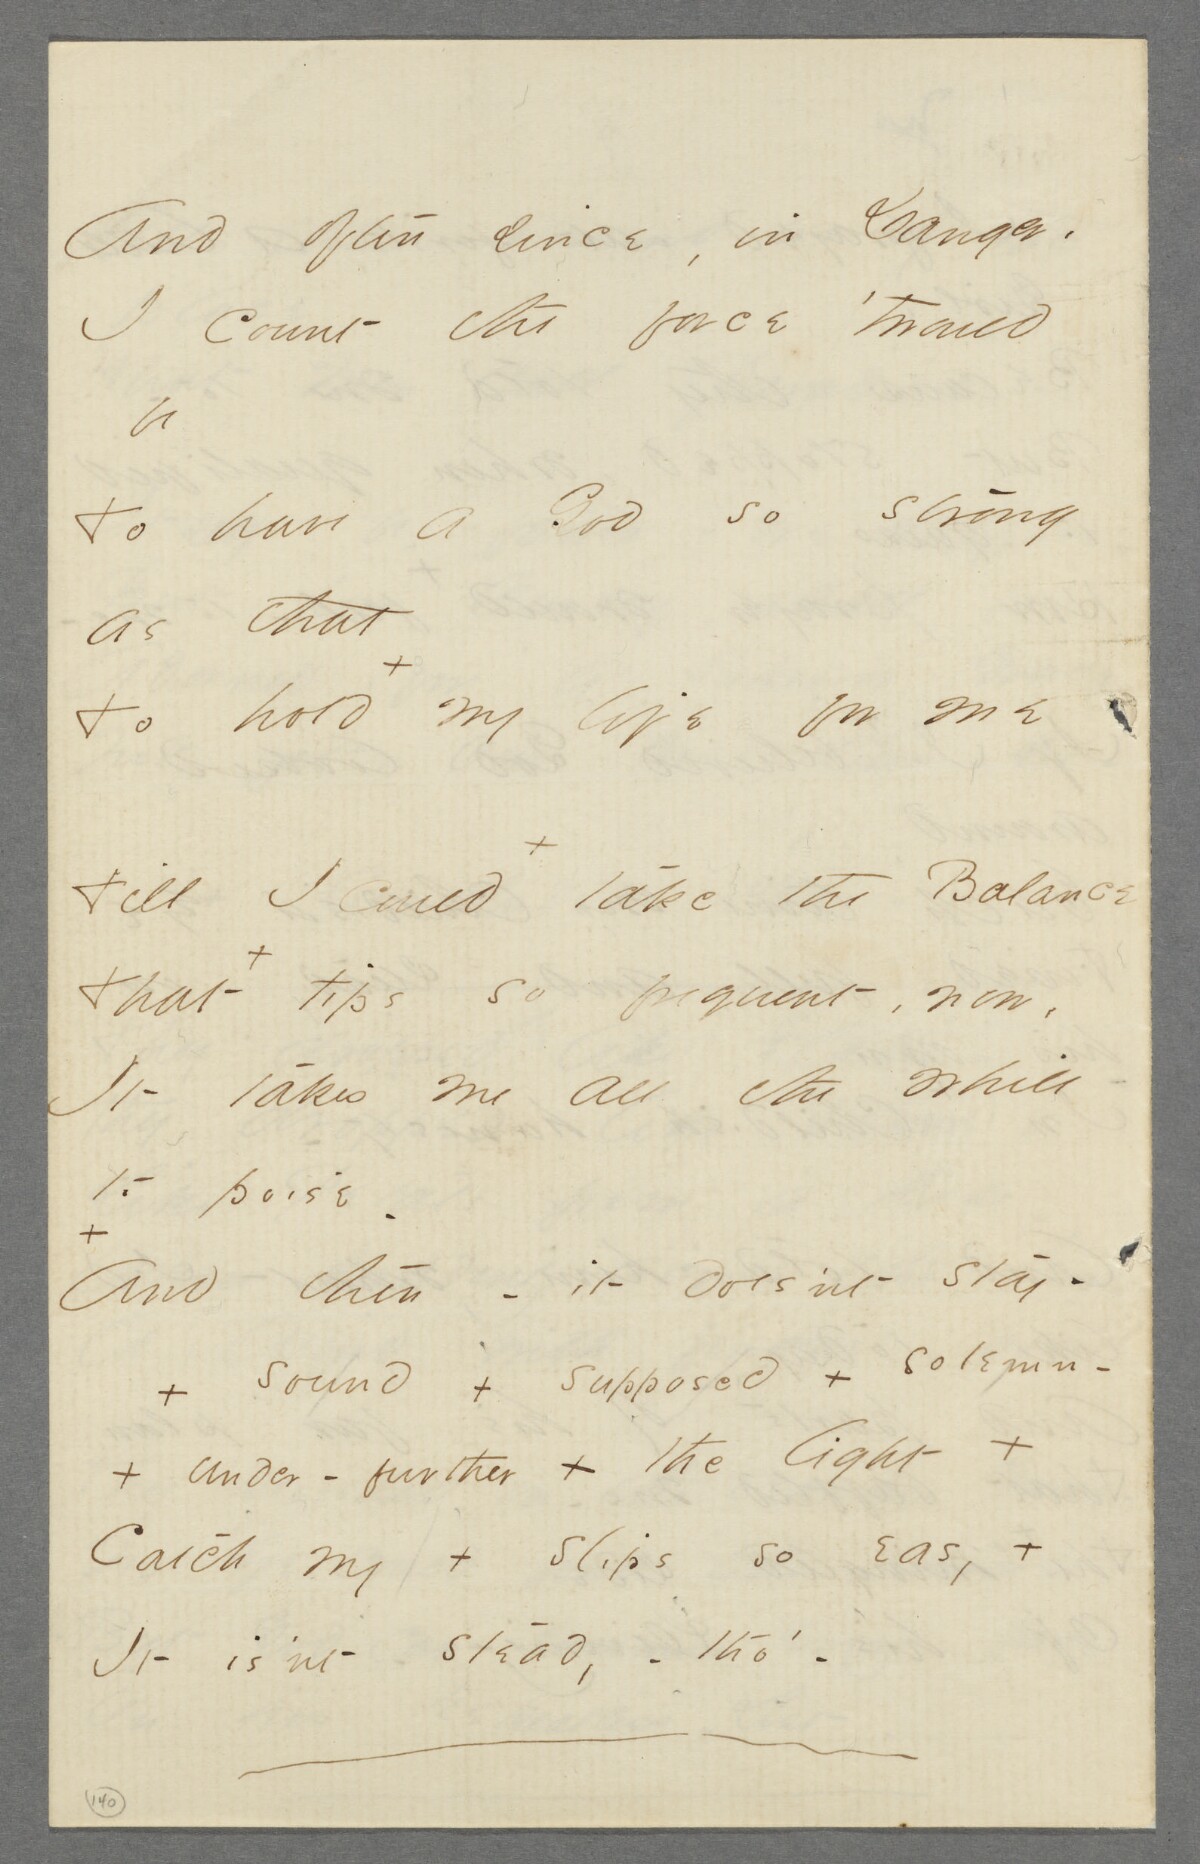 And often since, in Danger,
I count the force 'twould
be
To have a God so strong
as that
To hold + my life for me
Till I could + take the Balance
That + tips so frequent, now,
It takes me all the while
to poise -
+
And then - it doesn't stay -
+ sound + supposed + solemn -
+ under - further + the light +
Catch my + slips so easy +
It isn't steady - tho' -
140